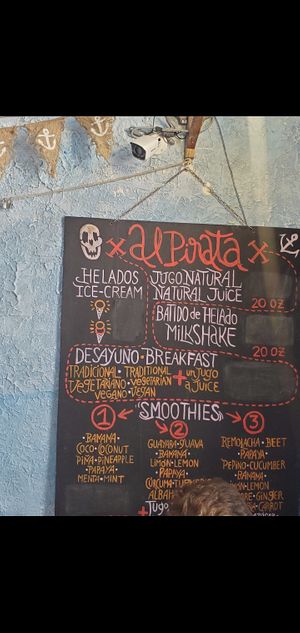 al Pirata
HELADOS
ICE-CREAM
JUGO NATURAL
NATURAL JUICE
20 OZ
BATIDO DE HELADO
MILKSHAKE
20 OZ
DESAYUNO-BREAKFAST
TRADICIONAL·TRADITIONAL
VEGETARIANO·VEGETARIAN
VEGANO·VEGAN
+ un JUGO
a JUICE
"SMOOTHIES"
1
·BANANA
COCO·COCONUT
PIÑA·PINEAPPLE
·PAPAYA·
MENTA·MINT
2
GUAYABA·GUAVA
·BANANA·
LIMÓN·LEMON
·PAPAYA·
+ Jugo
3
REMOLACHA·BEET
·PAPAYA·
PEPINO·CUCUMBER
·BANANA·
LEMON
GINGER
CARROT